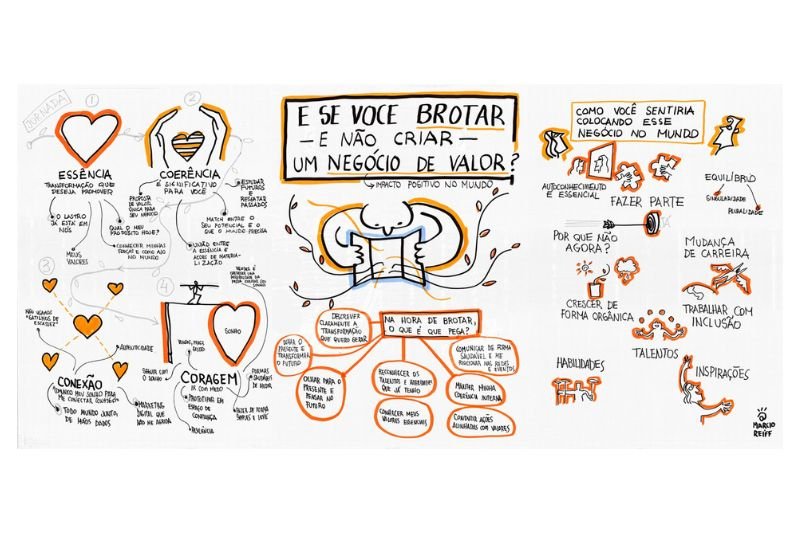 JORNADA
1
ESSÊNCIA
TRANSFORMAÇÃO QUE
DESEJA PROMOVER
O LASTRO
JÁ ESTÁ EM
NÓS
MEUS
VALORES
QUAL O MEU
PROPÓSITO HOJE?
CONHECER MINHAS
FORÇAS E COMO AJO
NO MUNDO
2
COERÊNCIA
É SIGNIFICATIVO
PARA VOCÊ
PROPOSTA
DE VALOR
ÚNICA PARA
SEU NEGÓCIO
ESTUDAR
FUTUROS
E RESGATAR
PASSADOS
MATCH ENTRE O
SEU POTENCIAL E O
QUE O MUNDO PRECISA
ENTRE
A ESSÊNCIA E
AÇÕES DE MATERIA-
LIZAÇÃO
3
NÃO USAMOS
"GATILHOS DE
ESCASSEZ"
AUTENTICIDADE
CONEXÃO
TOMANDO MEU SONHO PARA
ME CONECTAR
TODO MUNDO JUNTO,
DE MÃOS DADAS
MARKETING
DIGITAL QUE
NÃO ME AGRIDA
4
SONHO
SONHAR COM
O SONHO
CORAGEM
IR COM MEDO
PROTOTIPAR EM
ESPAÇO DE
CONFIANÇA
RESILIÊNCIA
FORMAS
SAUDÁVEIS
FAZER DE FORMA
SIMPLES E LEVE
E SE VOCE BROTAR
— E NÃO CRIAR —
UM NEGÓCIO DE VALOR?
IMPACTO POSITIVO NO MUNDO
NA HORA DE BROTAR,
O QUE É QUE PEGA?
DESCREVER
CLARAMENTE A
TRANSFORMAÇÃO
QUE QUERO GERAR
OLHAR O
PRESENTE E
TRANSFORMAR
O FUTURO
OLHAR PARA O
PRESENTE E
PENSAR NO
FUTURO
RECONHECER OS
TALENTOS E
QUE JÁ TENHO
CONHECER MEUS
VALORES ESSENCIAIS
COMUNICAR DE FORMA
SAUDÁVEL E ME
POSICIONAR NAS REDES
E EVENTOS
MANTER MINHA
COERÊNCIA INTERNA
CONSTRUIR AÇÕES
ALINHADAS COM VALORES
COMO VOCÊ SENTIRIA
COLOCANDO ESSE
NEGÓCIO NO MUNDO
AUTOCONHECIMENTO
É ESSENCIAL
FAZER PARTE
EQUILÍBRIO
SINGULARIDADE
PLURALIDADE
POR QUE NÃO
AGORA?
MUDANÇA
DE CARREIRA
CRESCER DE
FORMA ORGÂNICA
TRABALHAR COM
INCLUSÃO
TALENTOS
HABILIDADES
INSPIRAÇÕES
MARCIO
REIFF